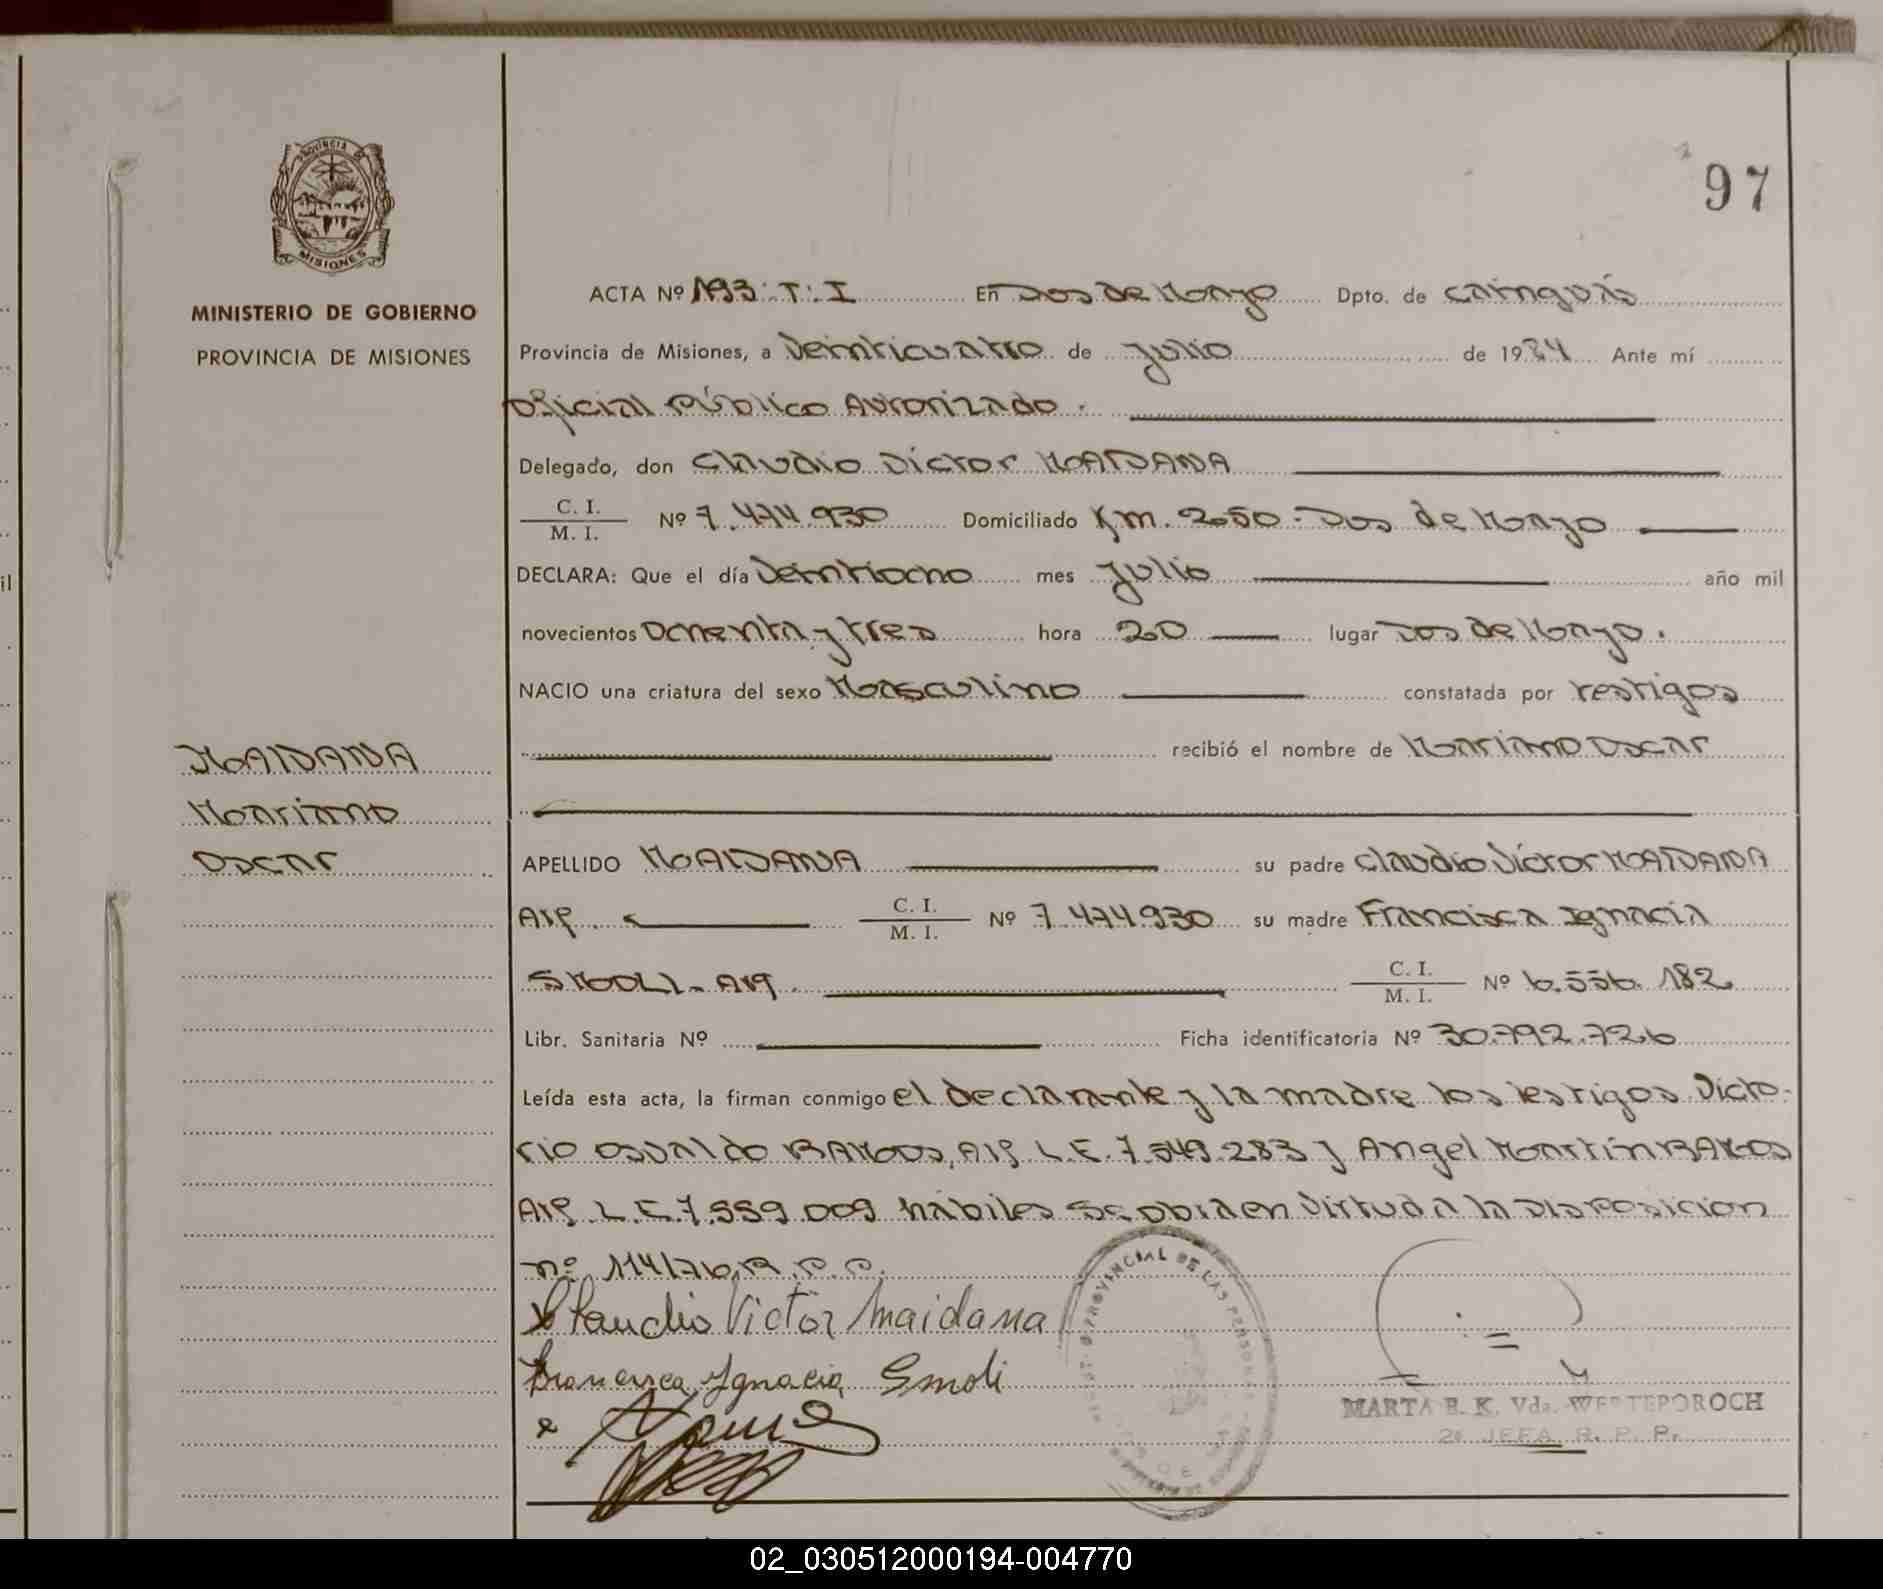 97
PROVINCIA DE
MISIONES
MINISTERIO DE GOBIERNO
PROVINCIA DE MISIONES
MAIDANA
Mariano
Oscar
ACTA Nº 193. T: I En Dos de Mayo Dpto. de Cainguás
Provincia de Misiones, a Veinticuatro de Julio de 1984 Ante mí
Oficial Público Autorizado.
Delegado, don Claudio Víctor MAIDANA
C. I.
M. I. Nº 7.474.930 Domiciliado Km. 250 - Dos de Mayo
DECLARA: Que el día Veintiocho mes Julio año mil
novecientos Ochenta y tres hora 20 lugar Dos de Mayo.
NACIO una criatura del sexo Masculino constatada por testigos
recibió el nombre de Mariano Oscar
APELLIDO MAIDANA su padre Claudio Víctor MAIDANA
Arg. C. I.
M. I. Nº 7.474.930 su madre Francisca Ignacia
SMOLI - Arg. C. I.
M. I. Nº 6.556.182
Libr. Sanitaria Nº Ficha identificatoria Nº 30.792.726
Leída esta acta, la firman conmigo el declarante y la madre los testigos Victo-
rio Osvaldo RAMOS, Arg. L.E. 7.549.283 y Angel Martín RAMOS
Arg. L.E. 7.559.009 habiles Se obra en virtud a la Disposicion
nº 114/76 R.P.P.
Claudio Victor Maidana
Francisca Ignacia Smoli
PROVINCIAL DE LAS PERSONAS
MARTA E. K. Vda. WERTEPOROCH
2a JEFA R. P. P.
02_030512000194-004770